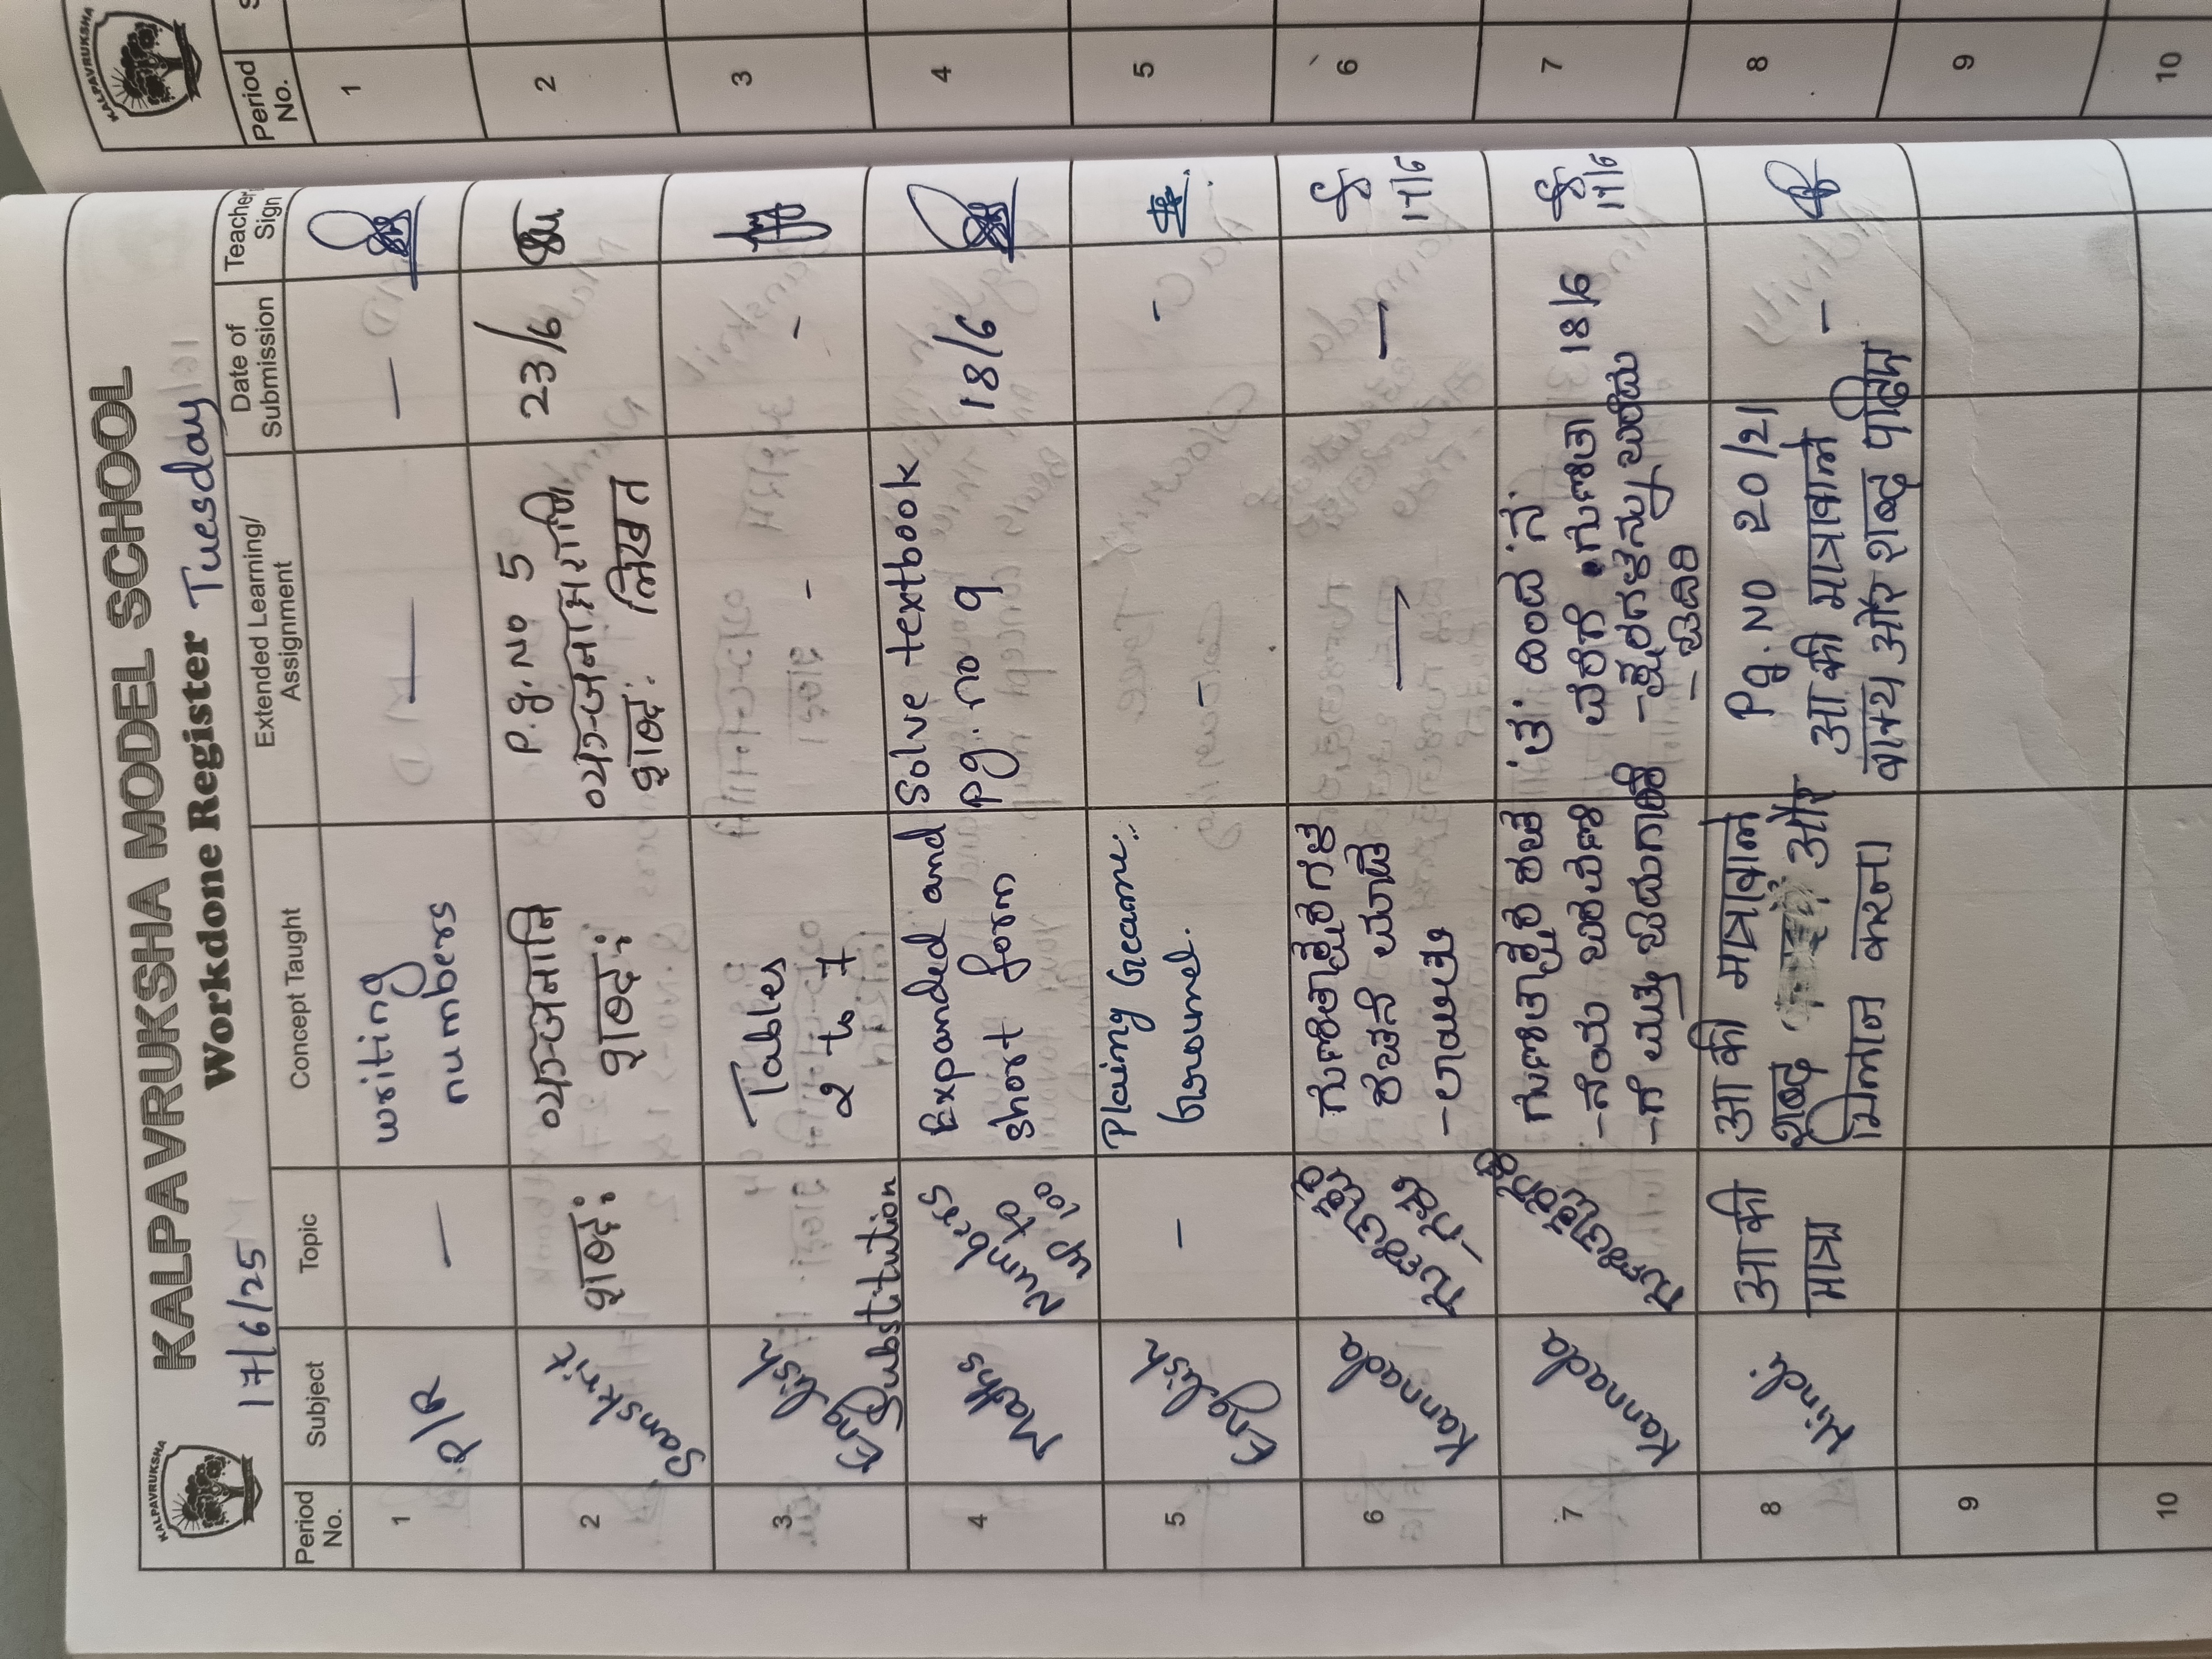 KALPAVRUKSHA
KALPAVRUKSHA MODEL SCHOOL
Workdone Register
17/6/25
Tuesday
Period No.
Subject
Topic
Concept Taught
Extended Learning/ Assignment
Date of Submission
Teacher Sign
1
P/R
—
writing
numbers
—
—
2
Sanskrit
शब्दः
व्यञ्जनानि
शब्दः
P.g. No 5
शब्दः लिखत
23/6
3
English
Substitution
Tables
2 to 7
-
-
4
Maths
Numbers
up to
100
Expanded and
short form
Solve textbook
pg. no 9
18/6
5
English
-
Plaining Game
Ground.
-
-
6
Kannada
ಗುಣಿತಾಕ್ಷರಗಳ
—
—
17/6
7
Kannada
ಗುಣಿತಾಕ್ಷರ
18/6
17/6
8
Hindi
आ की
मात्रा
आ की मात्रावाले
शब्द और
मिलान करना।
Pg. No 20/21
आ की मात्रावाले
वाक्य और शब्द पढिए
-
9
10
KALPAVRUKSHA
Period No.
1
2
3
4
5
6
7
8
9
10